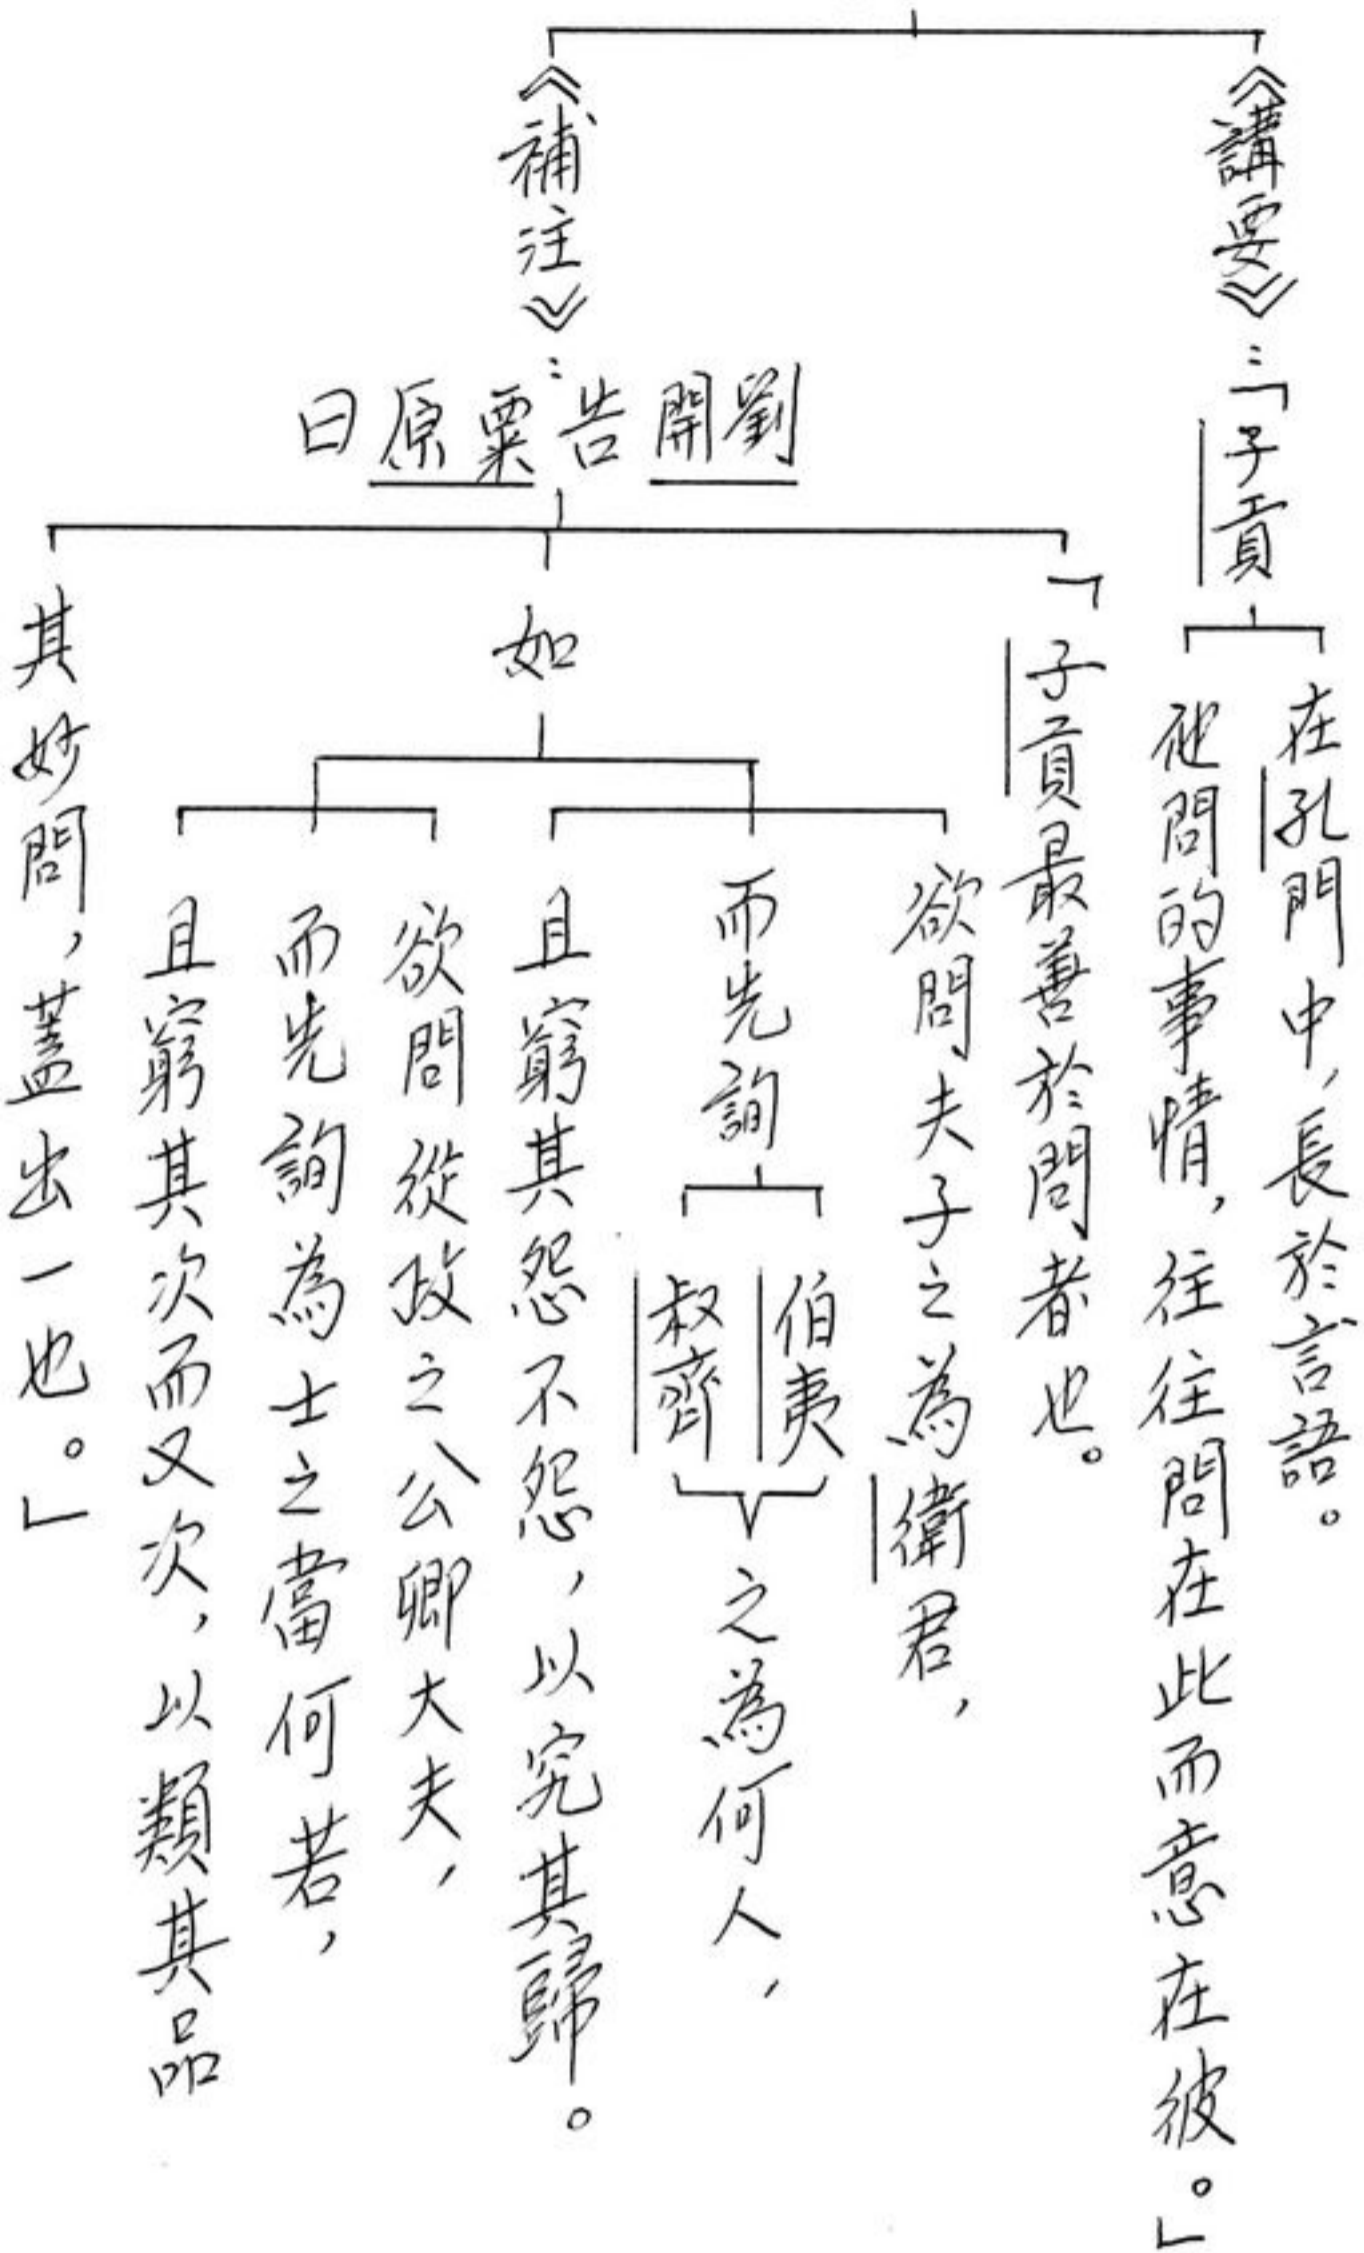 《講要》：「子貢
在孔門中，長於言語。
他問的事情，往往問在此而意在彼。」
《補注》：
劉開告粟原曰
「子貢最善於問者也。
如
欲問夫子之為衛君，
而先詢
伯夷
叔齊
之為何人，
且窮其怨不怨，以究其歸。
欲問從政之公卿大夫，
而先詢為士之當何若，
且窮其次而又次，以類其品
其妙問，蓋出一也。」